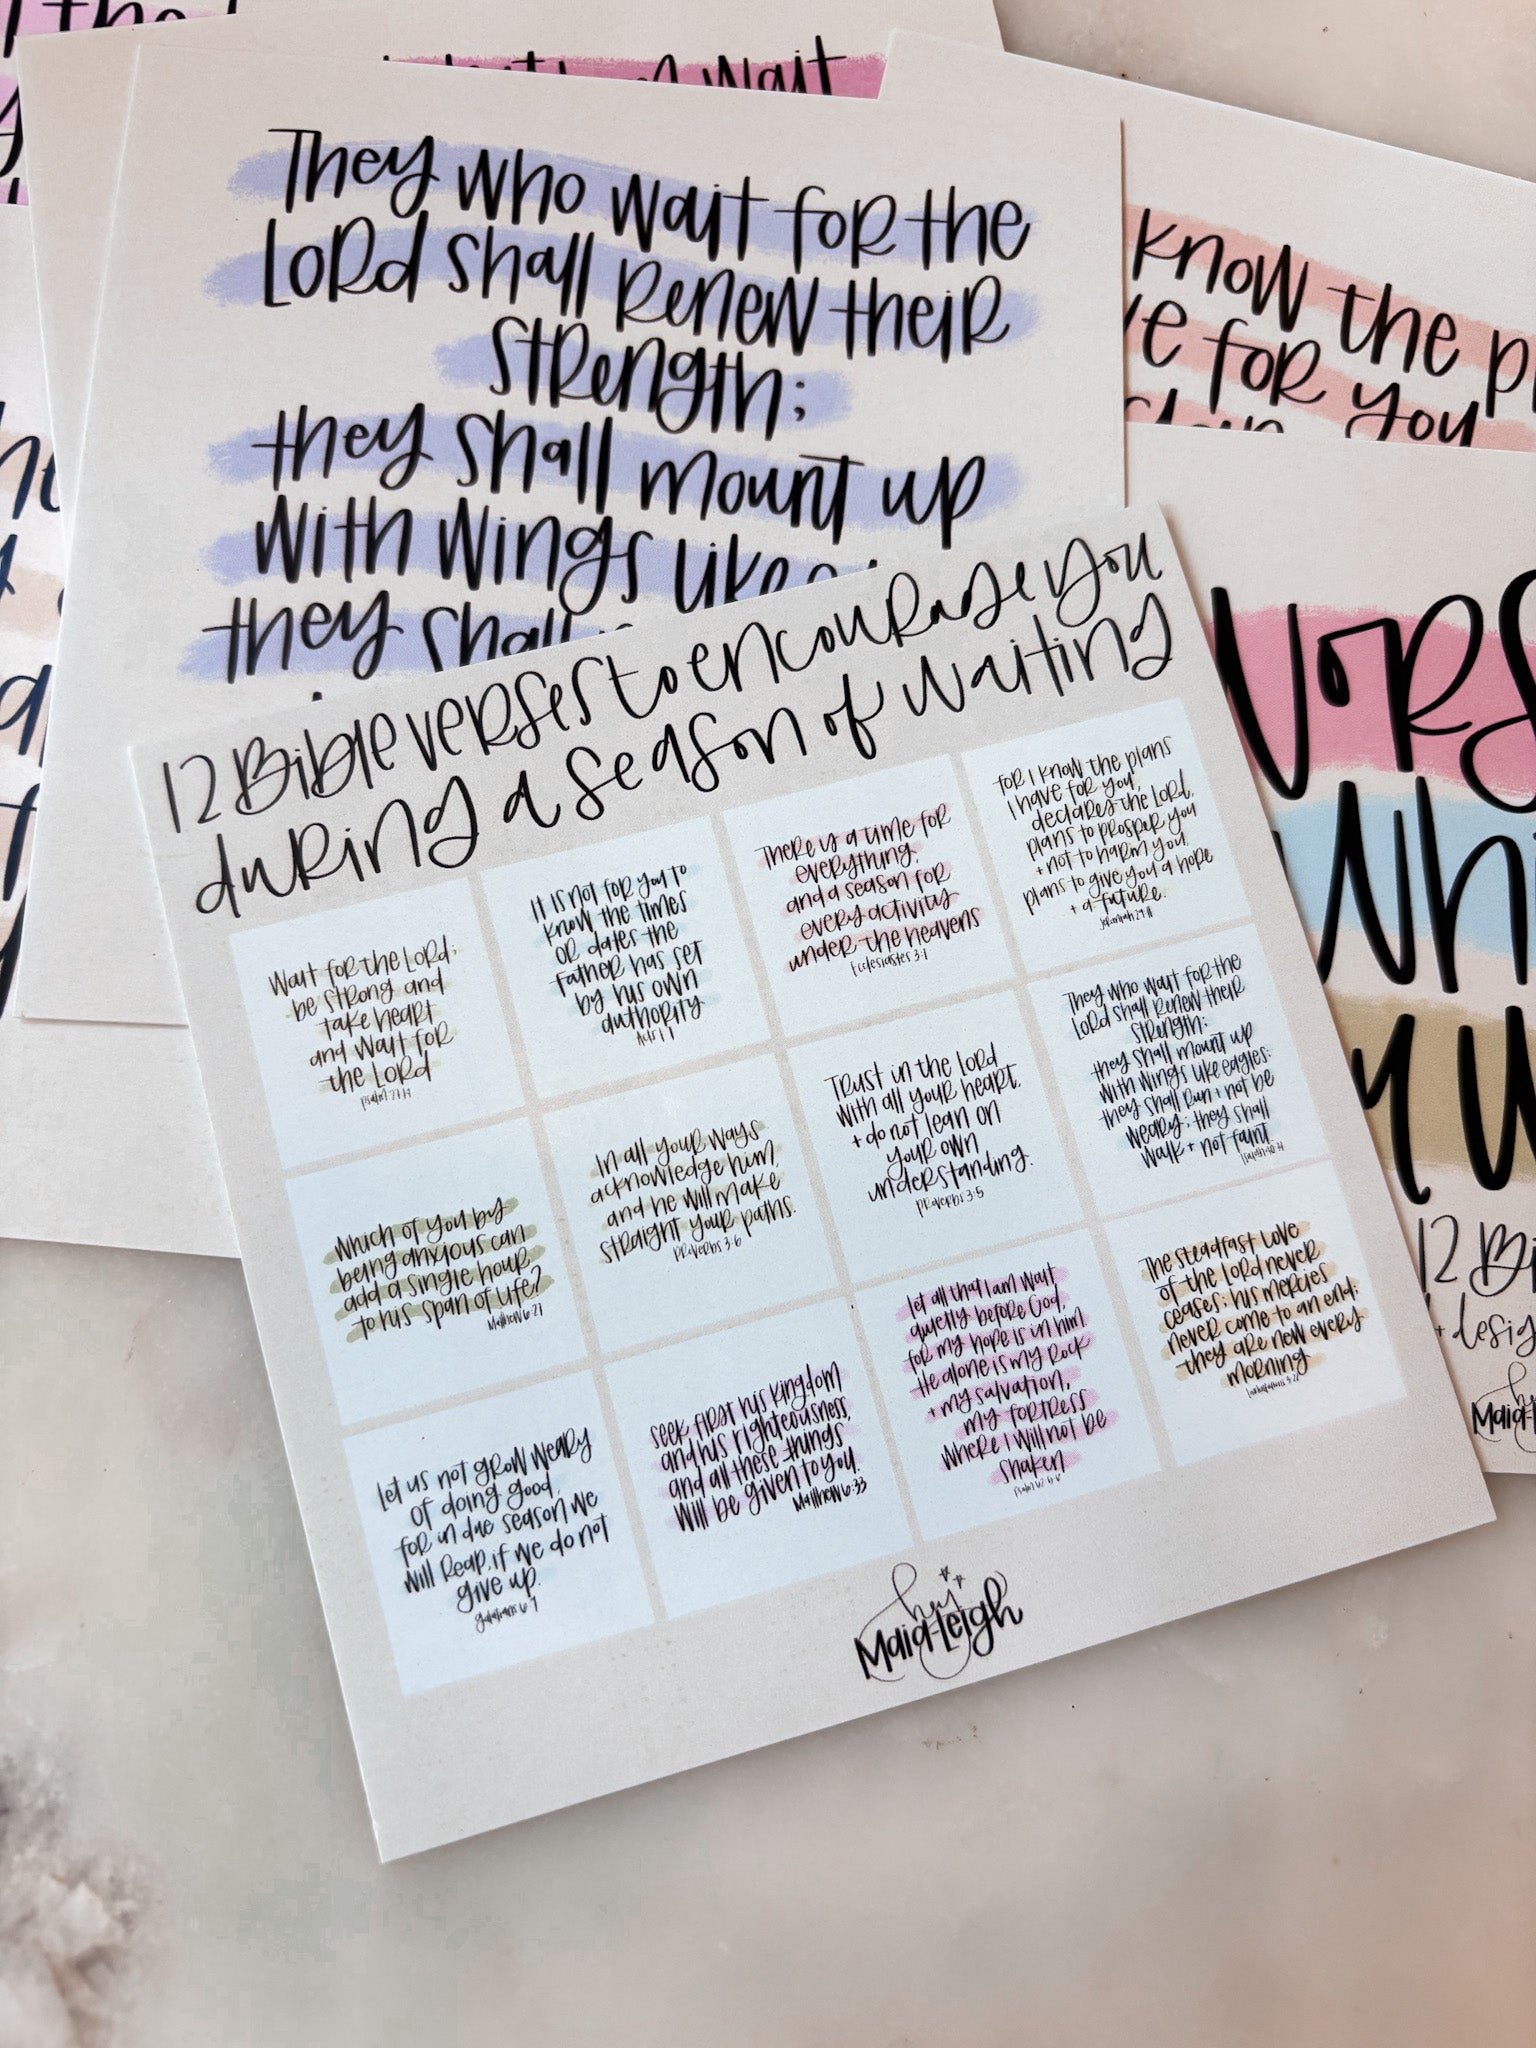 wait
They who wait for the
Lord shall renew their
strength;
they shall mount up
with wings like
they shall
know the
for you
Wors
Whi
12 Bi
+ desig
12 Bible verses to encourage you
during a season of waiting
Wait for the Lord;
be strong and
take heart
and wait for
the Lord
Psalm 27:14
It is not for you to
know the times
or dates the
Father has set
by his own
authority
Acts 1:7
There is a time for
everything,
and a season for
every activity
under the heavens
Ecclesiastes 3:1
for I know the plans
I have for you,
declares the Lord,
plans to prosper you
+ not to harm you,
plans to give you a hope
+ a future.
Jeremiah 29:11
Which of you by
being anxious can
add a single hour
to his span of life?
Matthew 6:27
In all your ways
acknowledge him,
and he will make
straight your paths.
Proverbs 3:6
Trust in the Lord
with all your heart,
+ do not lean on
your own
understanding.
Proverbs 3:5
They who wait for the
Lord shall renew their
strength;
they shall mount up
with wings like eagles;
they shall run + not be
weary; they shall
walk + not faint.
Isaiah 40:31
Let us not grow weary
of doing good,
for in due season we
will reap, if we do not
give up.
galatians 6:9
seek first his kingdom
and his righteousness,
and all these things
will be given to you.
Matthew 6:33
let all that I am wait
quietly before God,
for my hope is in him.
He alone is my rock
+ my salvation,
my fortress
where I will not be
shaken
The steadfast love
of the Lord never
ceases; his mercies
never come to an end;
they are new every
morning
hey
Maia-Leigh